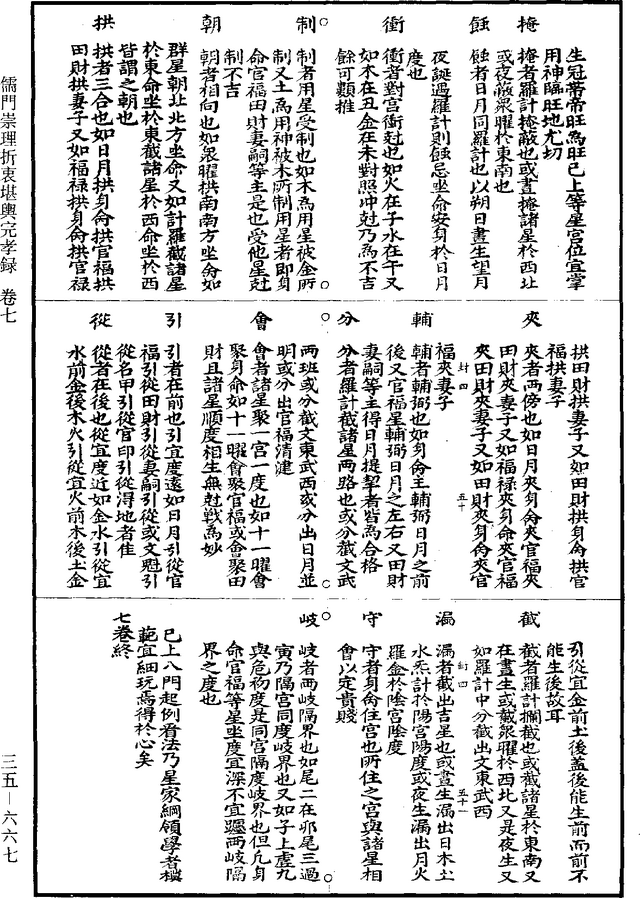 儒門崇理折衷堪輿完孝錄　卷七
三五－六六七
生冠帶帝旺為旺已上等星宮位宜掌
用神臨旺地尤切
掩
掩者羅計掩蔽也或晝掩諸星於西北
或夜蔽衆曜於東南也
蝕
蝕者日月同羅計也以朔日晝生望月
夜誕遇羅計則蝕忌坐命安身於日月
度也
衝
衝者對宮衝尅也如火在子水在午又
如木在丑金在未對照冲尅乃為不吉
餘可類推
制
制者用星受制也如木為用星被金所
制又土為用神被木所制用星者即身
命官福田財妻嗣等主是也受他星尅
制不吉
朝
朝者相向也如衆曜拱南南方坐命如
群星朝北北方坐命又如計羅截諸星
於東命坐於東截諸星於西命坐於西
皆謂之朝也
拱
拱者三合也如日月拱身命拱官福拱
田財拱妻子又如福祿拱身命拱官祿
拱田財拱妻子又如田財拱身命拱官
福拱妻子
夾
夾者兩傍也如日月夾身命夾官福夾
田財夾妻子又如福祿夾身命夾官福
夾田財夾妻子又如田財夾身命夾官
福夾妻子
輔
輔者輔弼也如身命主輔弼日月之前
後又官福星輔弼日月之左右又田財
妻嗣等主得日月提挈者皆為合格
分
分者羅計截諸星兩路也或分截文武
兩班或分截文東武西或分出日月並
明或分出官福清健
會
會者諸星聚一宮一度也如十一曜會
聚身命如十一曜會聚官福或會聚田
財且諸星順度相生無尅戰為妙
引
引者在前也引宜度遠如日月引從官
福引從田財引從妻嗣引從或文魁引
從名甲引從官印引從淂地者佳
從
從者在後也從宜度近如金水引從宜
水前金後木火引從宜火前木後土金
引從宜金前土後蓋後能生前而前不
能生後故耳
截
截者羅計攔截也或截諸星於東南又
在晝生或截衆曜於西北又是夜生又
如羅計中分截出文東武西
漏
漏者截出吉星也或晝生漏出日木土
水炁計於陽宮陽度或夜生漏出月火
羅金於陰宮陰度
守
守者身命住宮也所住之宮與諸星相
會以定貴賤
岐
岐者兩岐隔界也如尾二在邪尾三過
寅乃隔宮同度岐界也又如子上虛九
與危初度是同宮隔度岐界也但凡身
命官福等星坐度宜深不宜躔兩岐隔
界之度也
已上八門起例看法乃星家綱領學者模
範宜細玩焉得於心矣
七卷終